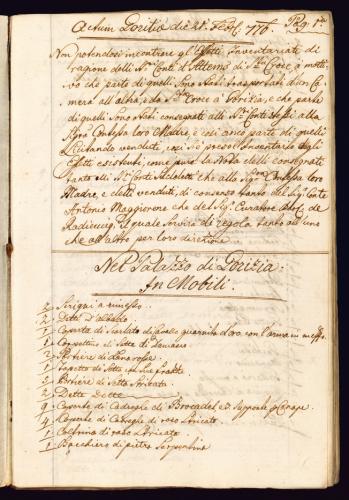 Actum Gorizia di 21 1776. Pag. 1ma
Non potendosi incontrare gl'Effetti Inventariati di
ragione delli Sri Conti d'Attems di Sta Croce à motti-
vo che parte di quelli sono stati trasportati d'una Ca-
mera all'altra, e da Sta Croce à Gorizia, e che parte
di quelli sono stati consegnati alli Sri Conti stessi alla
Contessa loro Madre, e così anco parte di quelli
Licitando venduti, così si presol Inventario degli
Effetti esistenti, come pure la Nota delli consegnati
tanto alli Sri Conti che alla Sra Contessa loro
Madre, e delli venduti, di consenso tanto del Sigr Conte
Antonio Maggiorene che del Sigr Curatore de
Radieucig, il quale servirà di regola tanto ad uno
che all'altro per loro direzione.
Nel Palazzo di Gorizia.
In Mobili.
2 Scrigni a rimesso.
2 Dette d'albedo
1 Coperta di Scarlato di guernita d'oro con l'arma in mezzo.
1 di Sette di Damasco
2 Portiere di Lana rosse.
1 Tapetto de Sotto
3 Portiere di Setta
2 Dette Dette
9 Coperte di Cadreghe di Brocadel e 3 Supporte Canape
4 Coperte di Cadreghe di raso
1 Coltrina di raso
1 di pietra Serpentina